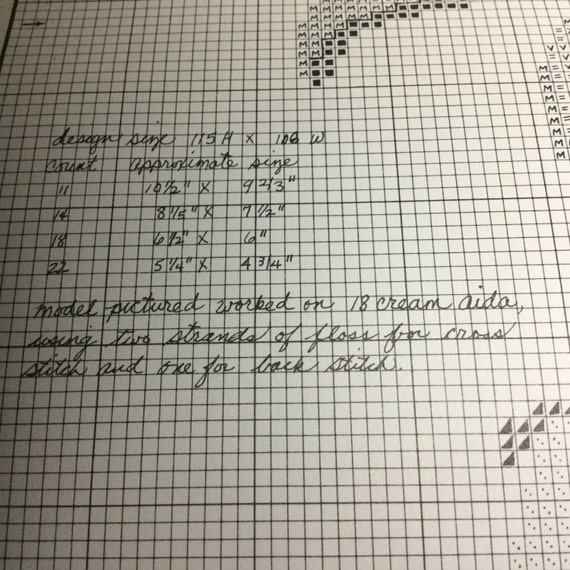 design size 115 H x 106 W
count approximate size
11 10 1/2" x 9 2/3"
14 8 1/5" x 7 1/2"
18 6 1/2" x 6"
22 5 1/4" x 4 3/4"
model pictured worked on 18 cream aida,
using two strands of floss for cross
stitch and one for back stitch.